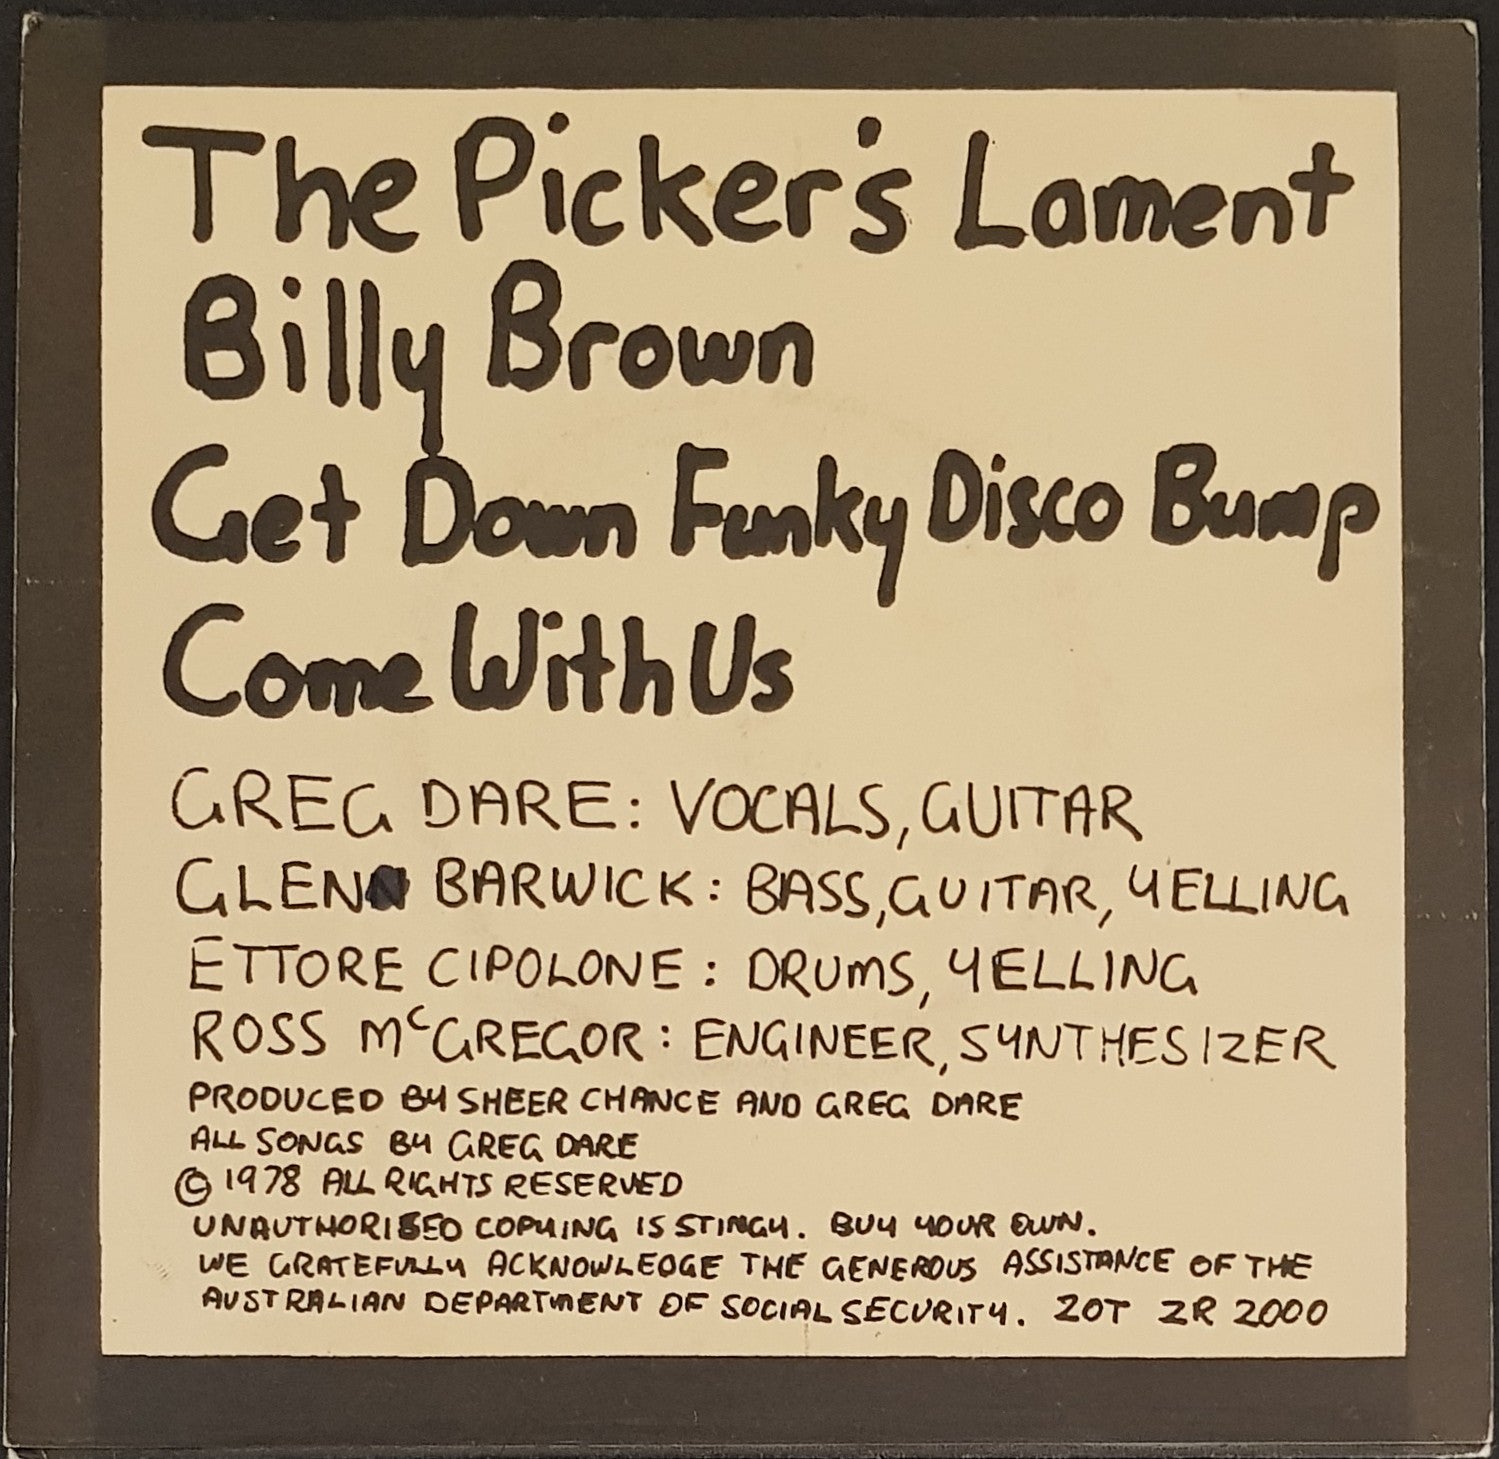 The Picker's Lament
Billy Brown
Get Down Funky Disco Bump
Come With Us
GREG DARE: VOCALS, GUITAR
GLEN BARWICK: BASS, GUITAR, YELLING
ETTORE CIPOLONE: DRUMS, YELLING
ROSS McGREGOR: ENGINEER, SYNTHESIZER
PRODUCED BY SHEER CHANCE AND GREG DARE
ALL SONGS BY GREG DARE
© 1978 ALL RIGHTS RESERVED
UNAUTHORISED COPYING IS STINGY. BUY YOUR OWN.
WE GRATEFULLY ACKNOWLEDGE THE GENEROUS ASSISTANCE OF THE
AUSTRALIAN DEPARTMENT OF SOCIAL SECURITY. ZOT ZR 2000